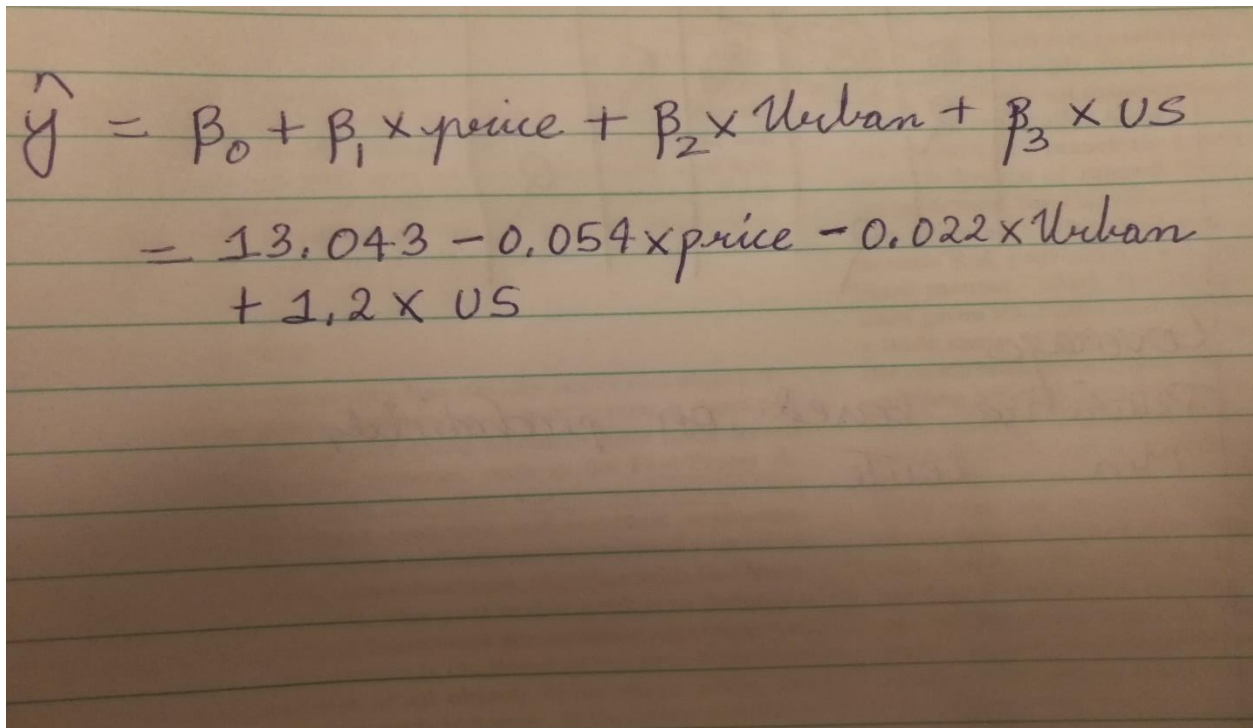 ŷ = β₀ + β₁ × price + β₂ × Urban + β₃ × US
= 13.043 - 0.054 × price - 0.022 × Urban
+ 1.2 × US